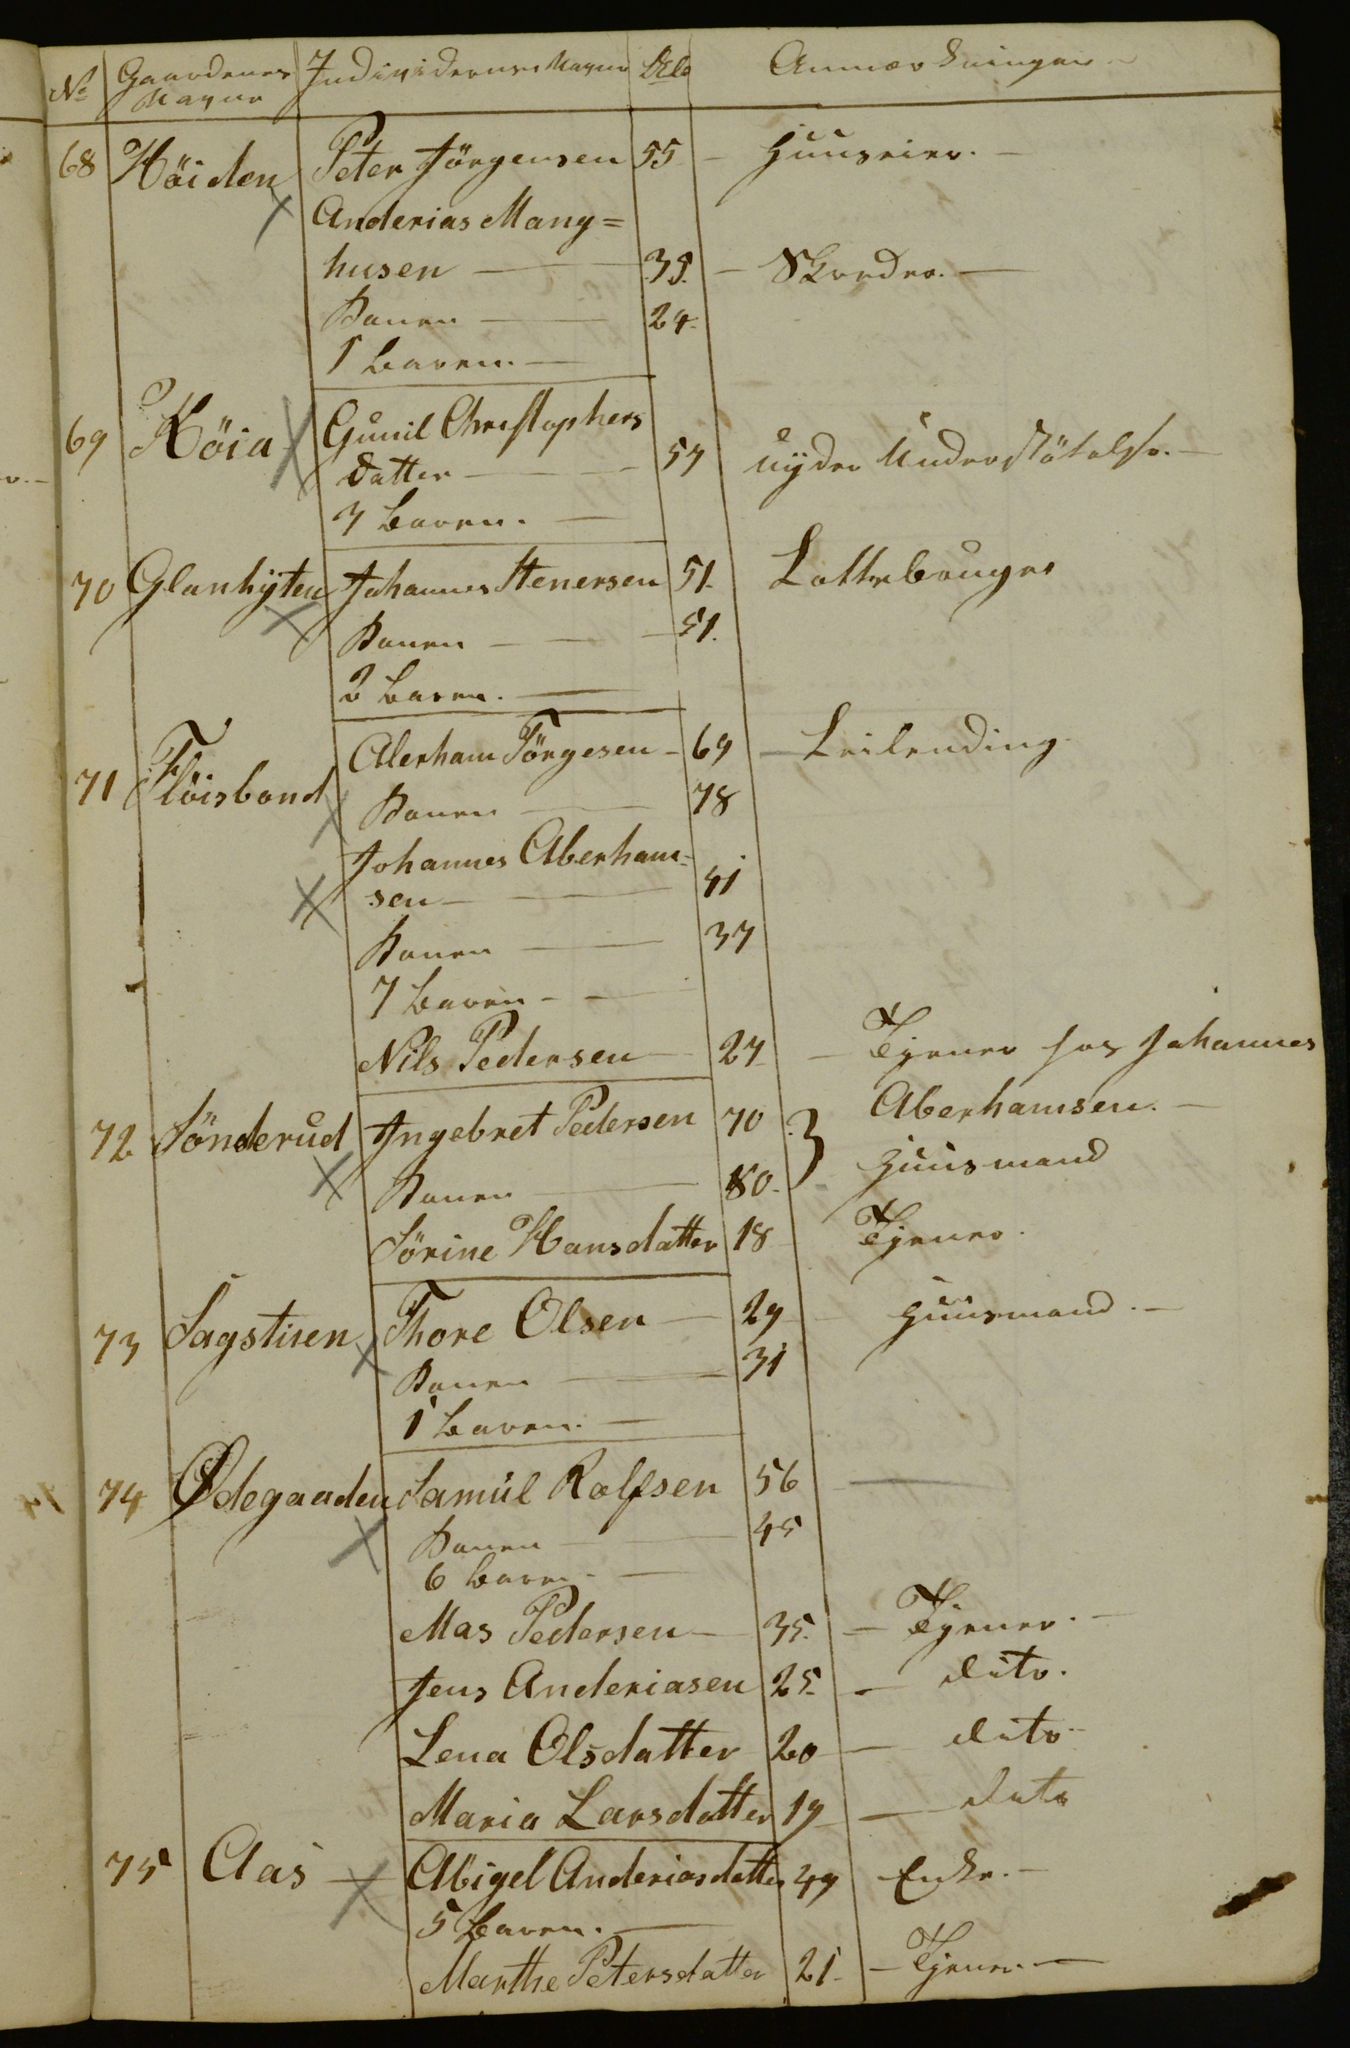 No Gaardenes Navne Individernes Navne Anmærkninger
68 Höiden Peter Jörgensen 55 - Huuseier. -
Anderias Mang=
husen - 35. - Skreder. -
Konen - 24.
1 Barn. -
69 Höia Gunil Christophers
datter - 57 nyder Understötelse. -
3 Barn. -
70 Glanhyten Johannes Stenersen 51. Lottebruger
Konen - 51.
2 Barn. -
71 Flöisbond Aberham Törgesen - 69 - Leilending
Konen - 78
Johannes Aberham=
sen - 41
Konen - 37
7 Barn - -
Nils Pedersen - 27 - Tjener hos Johannes
Aberhamsen. -
72 Sönderud Ingebret Pedersen 70 } Huusmand
Konen - 80.
Sörine Hansdatter 18 Tjener.
73 Sagstuen Thore Olsen - 29 - Huusmand. -
Konen - 31
1 Barn. -
74 Ødegaaden Samuel Rolfsen 56 -
Konen - 45
6 Barn. -
Mas Pedersen - 35. - Tjener. -
Jens Anderiasen 25. - dito.
Lena Olsdatter 20 - dito
Maria Larsdatter 19 - dito
75 Aas - Abigel Anderiasdatter 49 Enke. -
5 Barn. -
Marthe Petersdatter 21. - Tjener. -